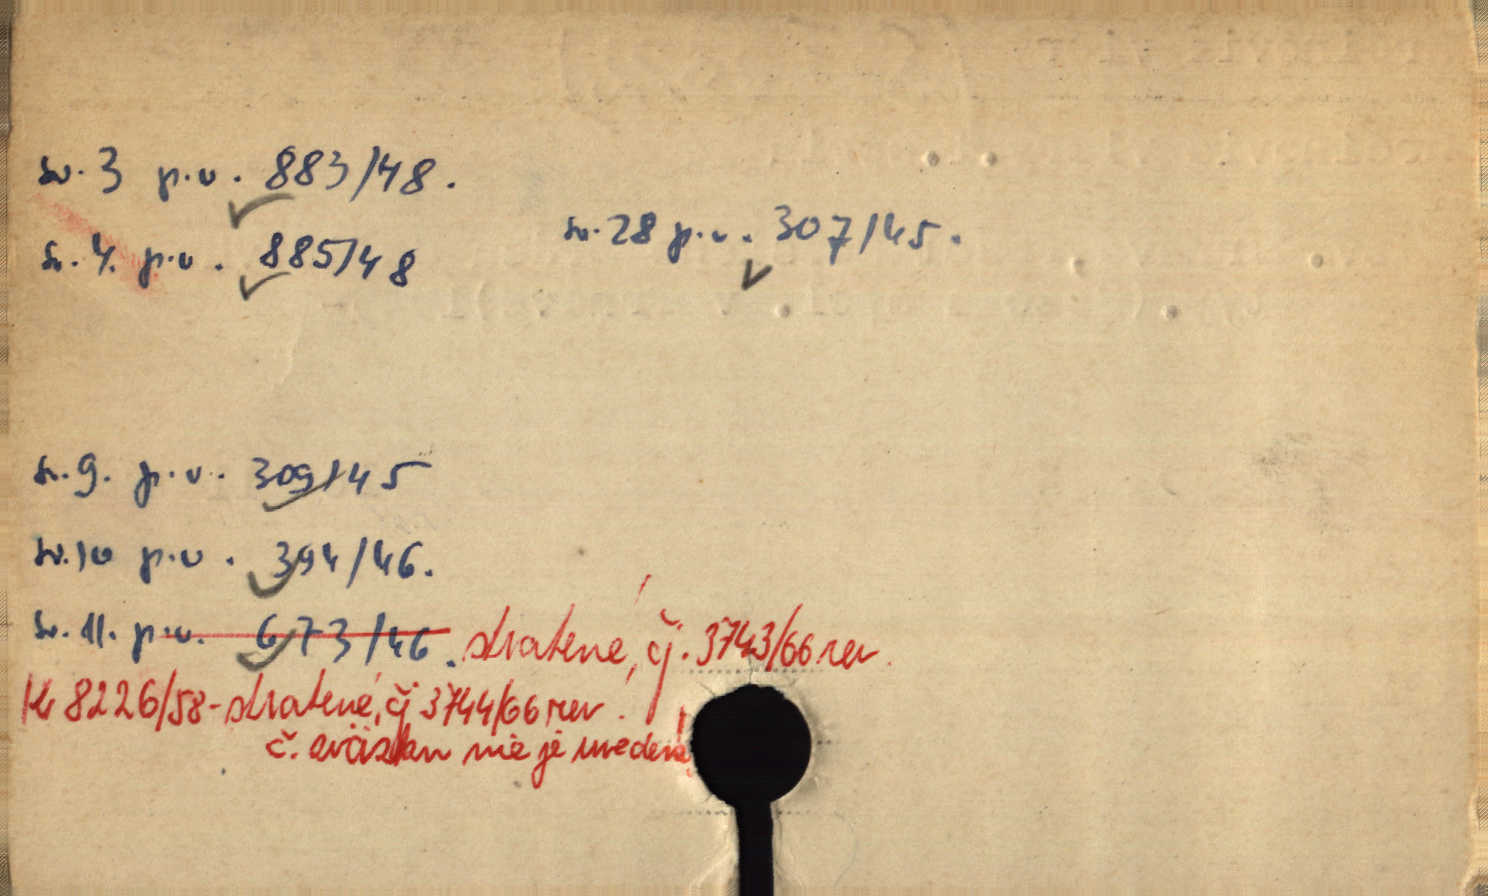 sv. 3 p.v. 883/48.
sv. 4. p.v. 885/48
sv. 28 p.v. 307/45.
sv. 9. p.v. 309/45
sv. 10 p.v. 394/46.
sv. 11. p.v. 673/46. stratené, čj. 3743/66 rev
8226/58 - stratené, čj 3744/66 rev.
č. nie je uvedené